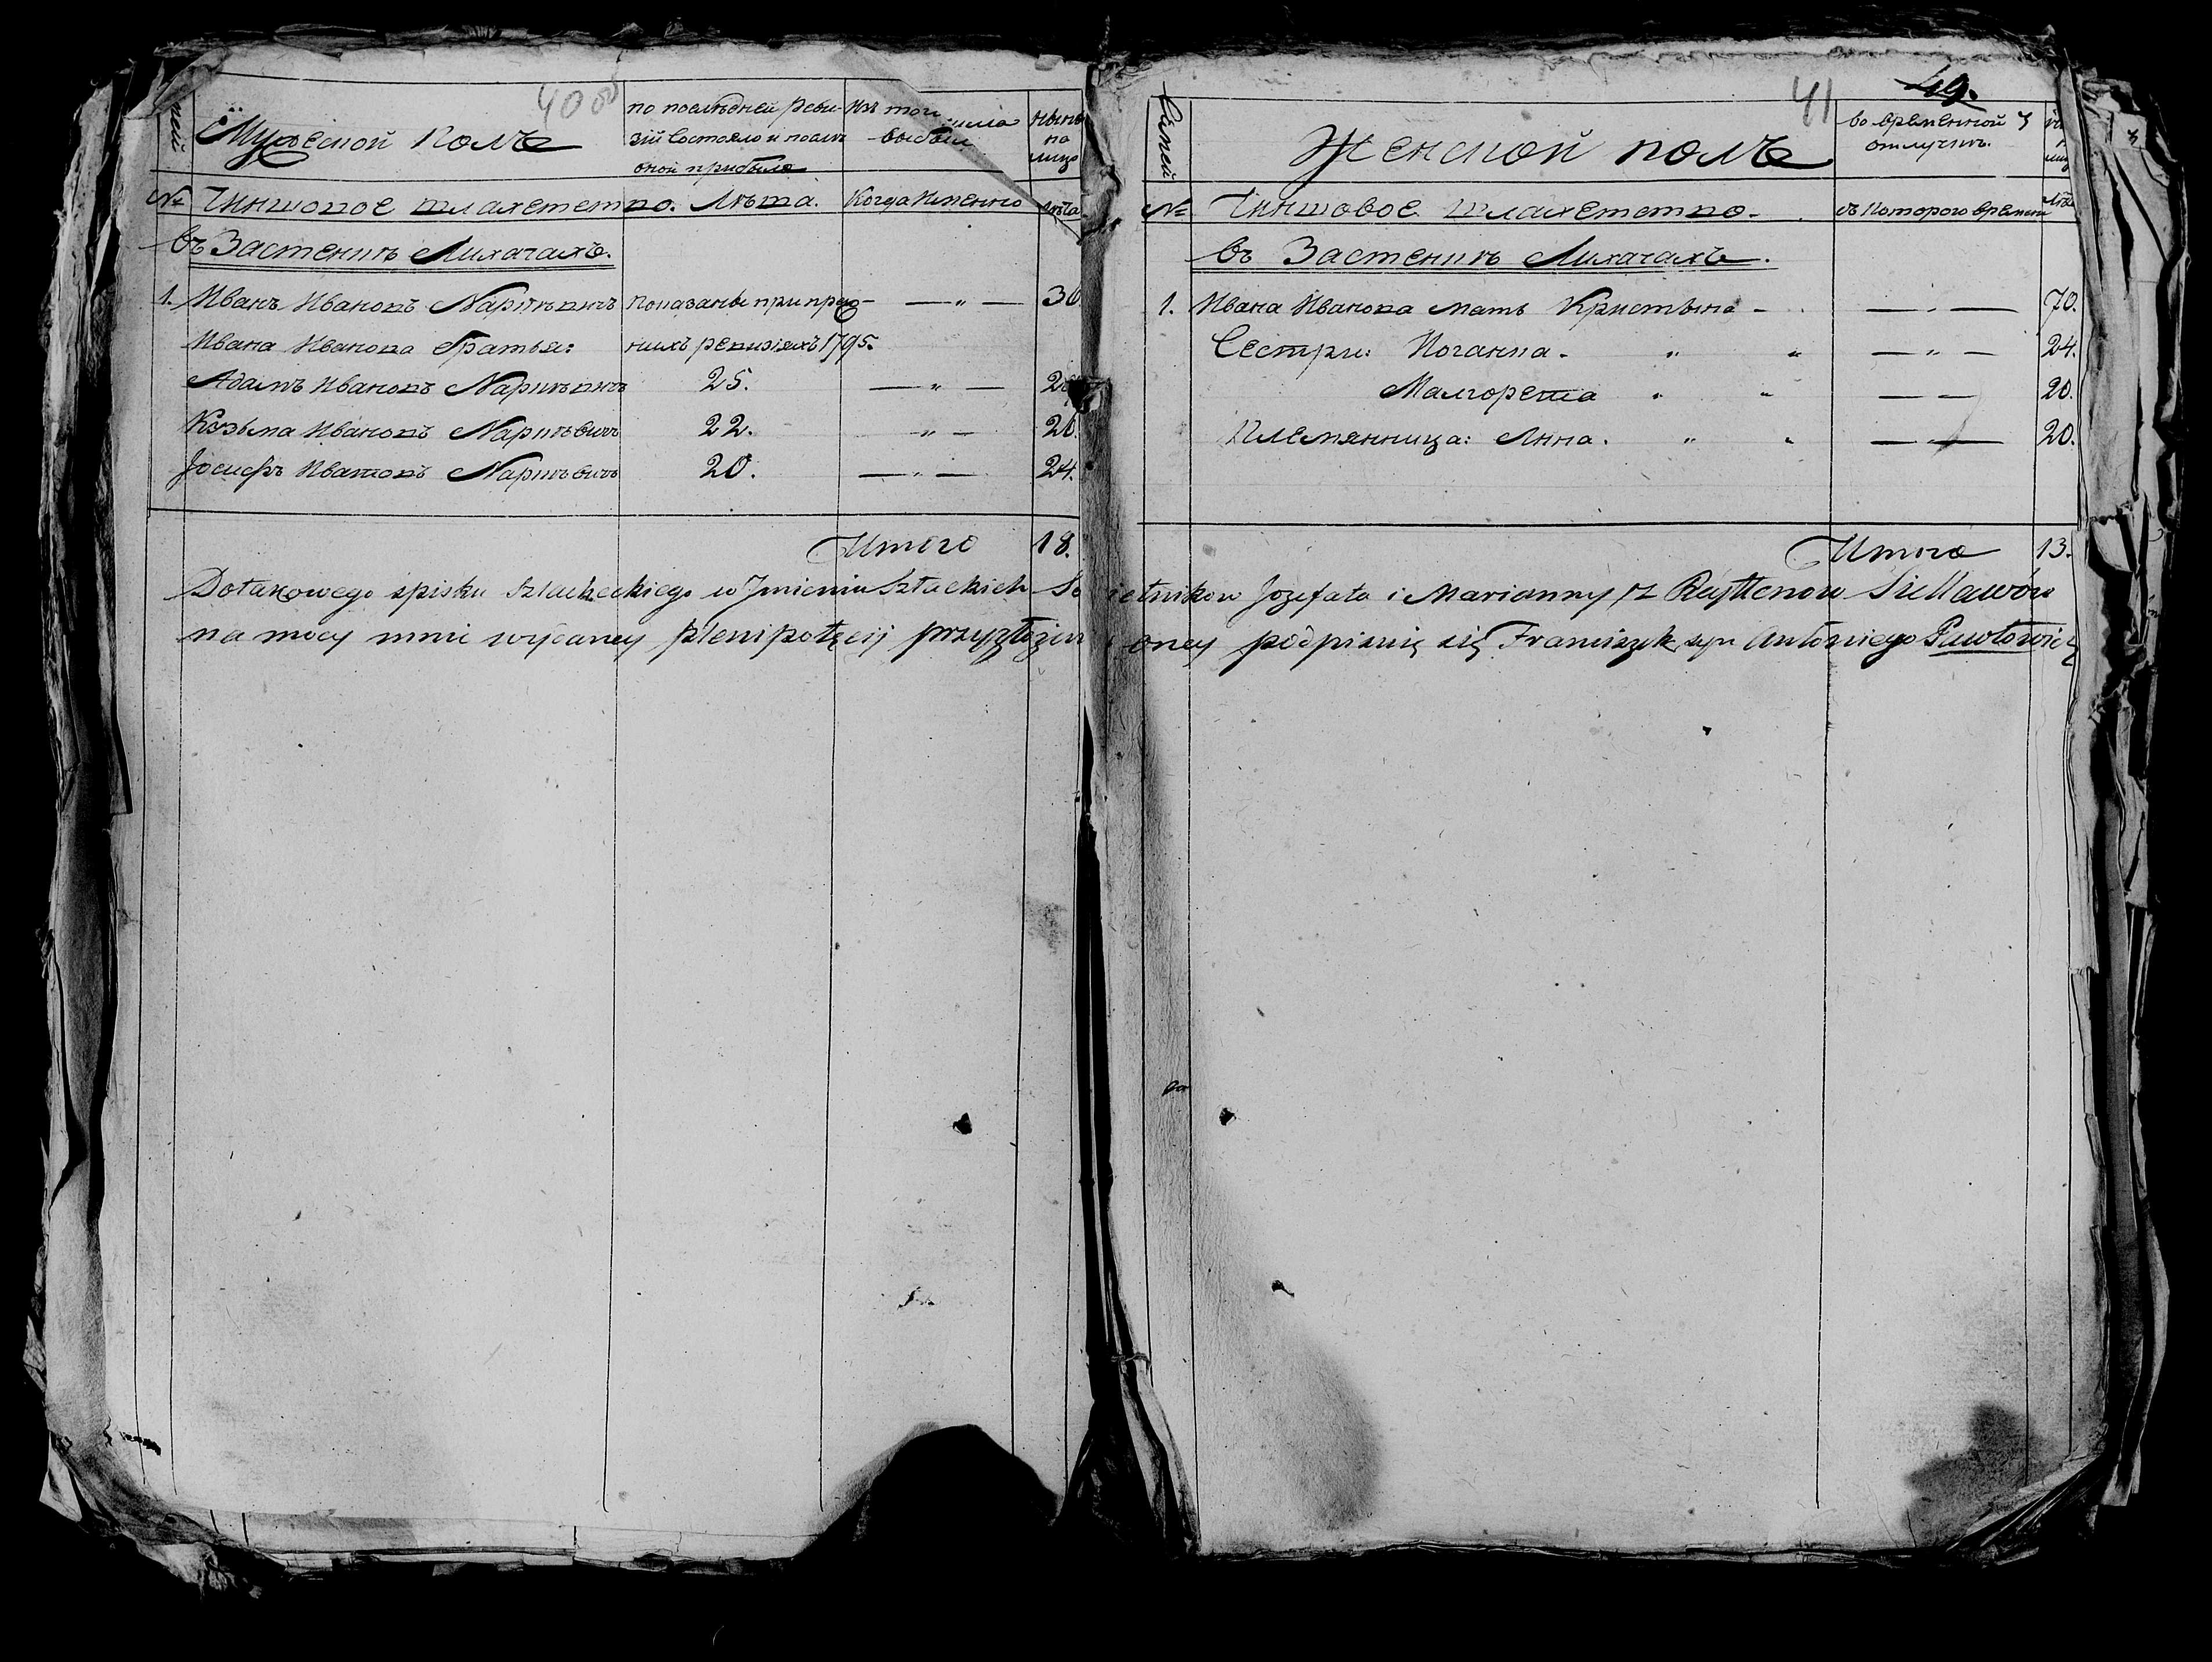 40 об
Мужеской полъ
по послѣдней реви-
зіи состояло и послѣ
оной прибыло
Изъ того числа
выбыли
нынѣ
на
лицо
№ Чиншовое шляхетство. Лѣта. Когда именно лѣта
въ Застенкѣ Лихачахъ.
1. Иванъ Ивановъ показаны при преж- — " — 36
Ивана Иванова братья: нихъ ревизіяхъ 1795.
Адамъ Ивановъ 25. — " —
Козьма Ивановъ 22. " — 26.
Іосифъ Ивановъ 20. — " — 24.
Итого 18.
41
49.
Семей
Женской полъ
во временной
отлучкѣ.
лицо
№ Чиншовое шляхетство. съ которого времени Лѣта
въ Застенкѣ Лихачахъ.
1. Ивана Иванова мать Кристына - — " — 70.
Сестры: Иоганна. " " — " — 24.
Малгорета " " — — 20.
Племянница: Анна. " " — — 20.
Итого 13.
Do takowego spisku Szlacheckiego w Jmieniu Szlackich So ietnikow Jozefata i Marianny z Reyttenow Siellawów
na mocy mnie wydaney plenipotęcij przyłożen oney podpisuię się Franciszek syn Antoniego Pawłowicz